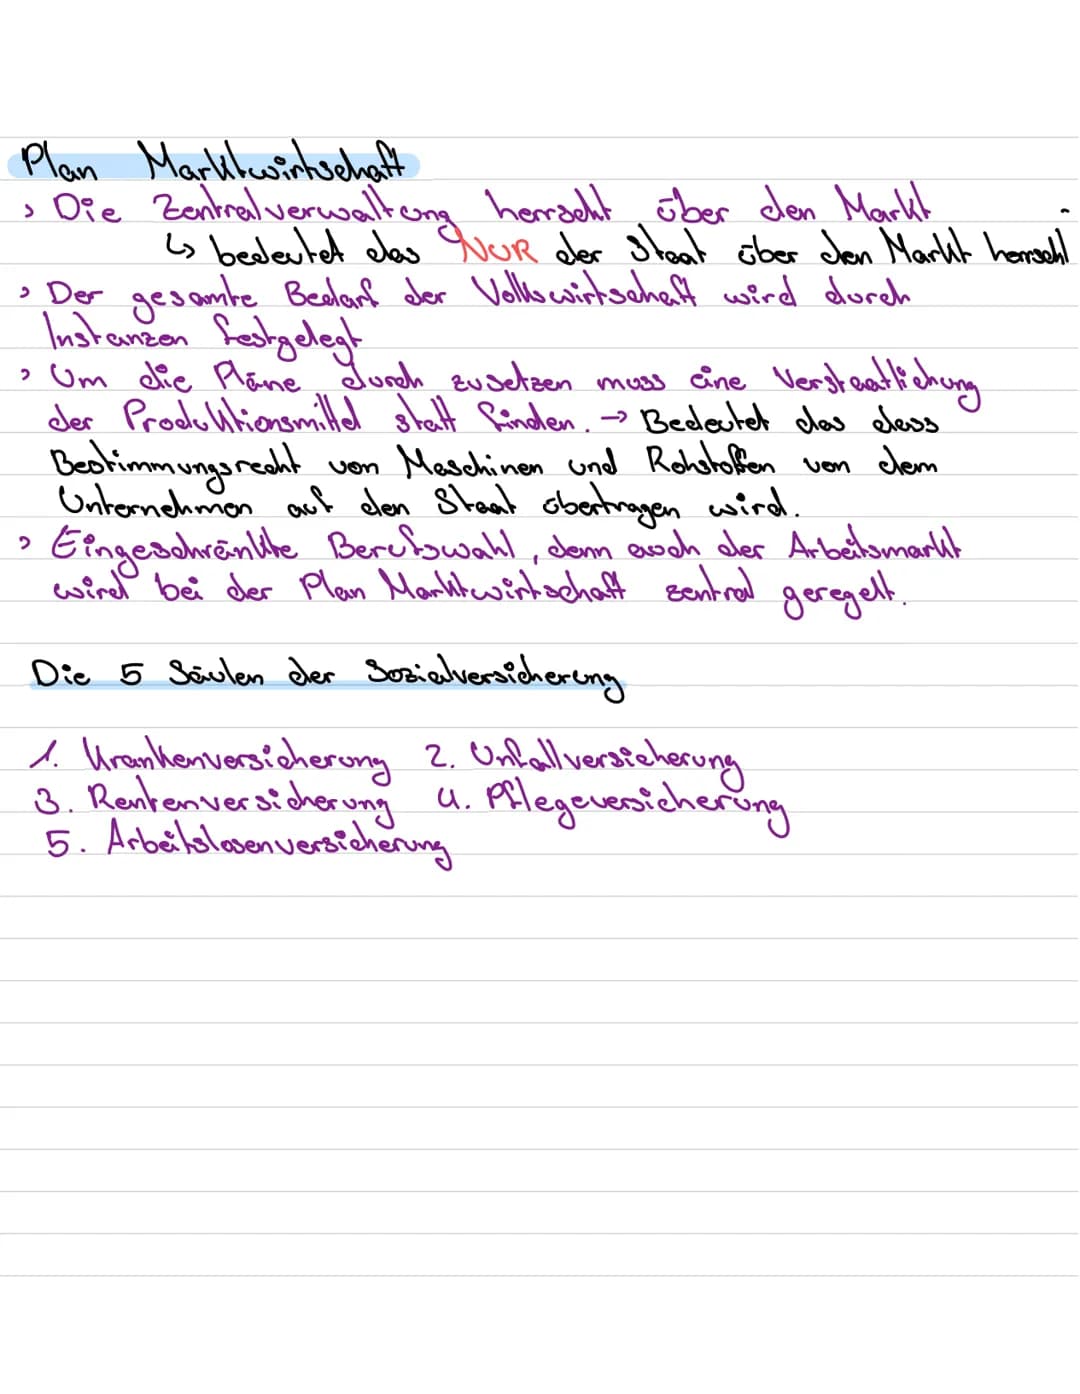 Plan Marktwirtschaft
› Die Zentralverwaltung herrscht über den Markt
↳ bedeutet das NUR der Staat über den Markt herrscht
› Der gesamte Bedarf der Volkswirtschaft wird durch
Instanzen festgelegt
› Um die Pläne durch zusetzen muss eine Verstaatlichung
der Produktionsmittel statt finden. → Bedeutet das dass
Bestimmungsrecht von Maschinen und Rohstoffen von dem
Unternehmen auf den Staat übertragen wird.
› Eingeschränkte Berufswahl, denn auch der Arbeitsmarkt
wird bei der Plan Marktwirtschaft zentral geregelt.
Die 5 Säulen der Sozialversicherung
1. Krankenversicherung 2. Unfallversicherung
3. Rentenversicherung 4. Pflegeversicherung
5. Arbeitslosenversicherung